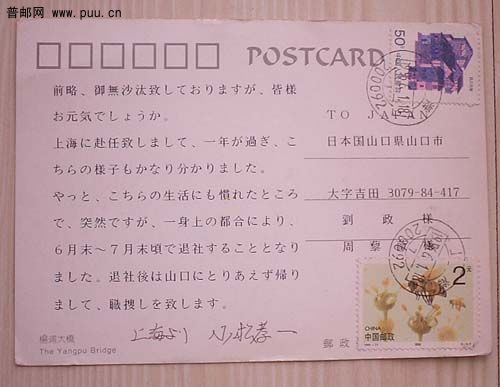 普邮网
www.puu.cn
POSTCARD
前略、御無沙汰致しておりますが、皆様
お元気でしょうか。
上海に赴任致しまして、一年が過ぎ、こ
ちらの様子もかなり分かりました。
やっと、こちらの生活にも慣れたところ
で、突然ですが、一身上の都合により、
6月末~7月末頃で退社することとなり
ました。退社後は山口にとりあえず帰り
まして、職捜しを致します。
上海より 小松孝一
楊浦大橋
The Yangpu Bridge
50
200092
TO JAPAN
日本国山口県山口市
大字吉田 3079-84-417
劉政 様
周蘂 様
200092
2元
CHINA
中国邮政
郵政